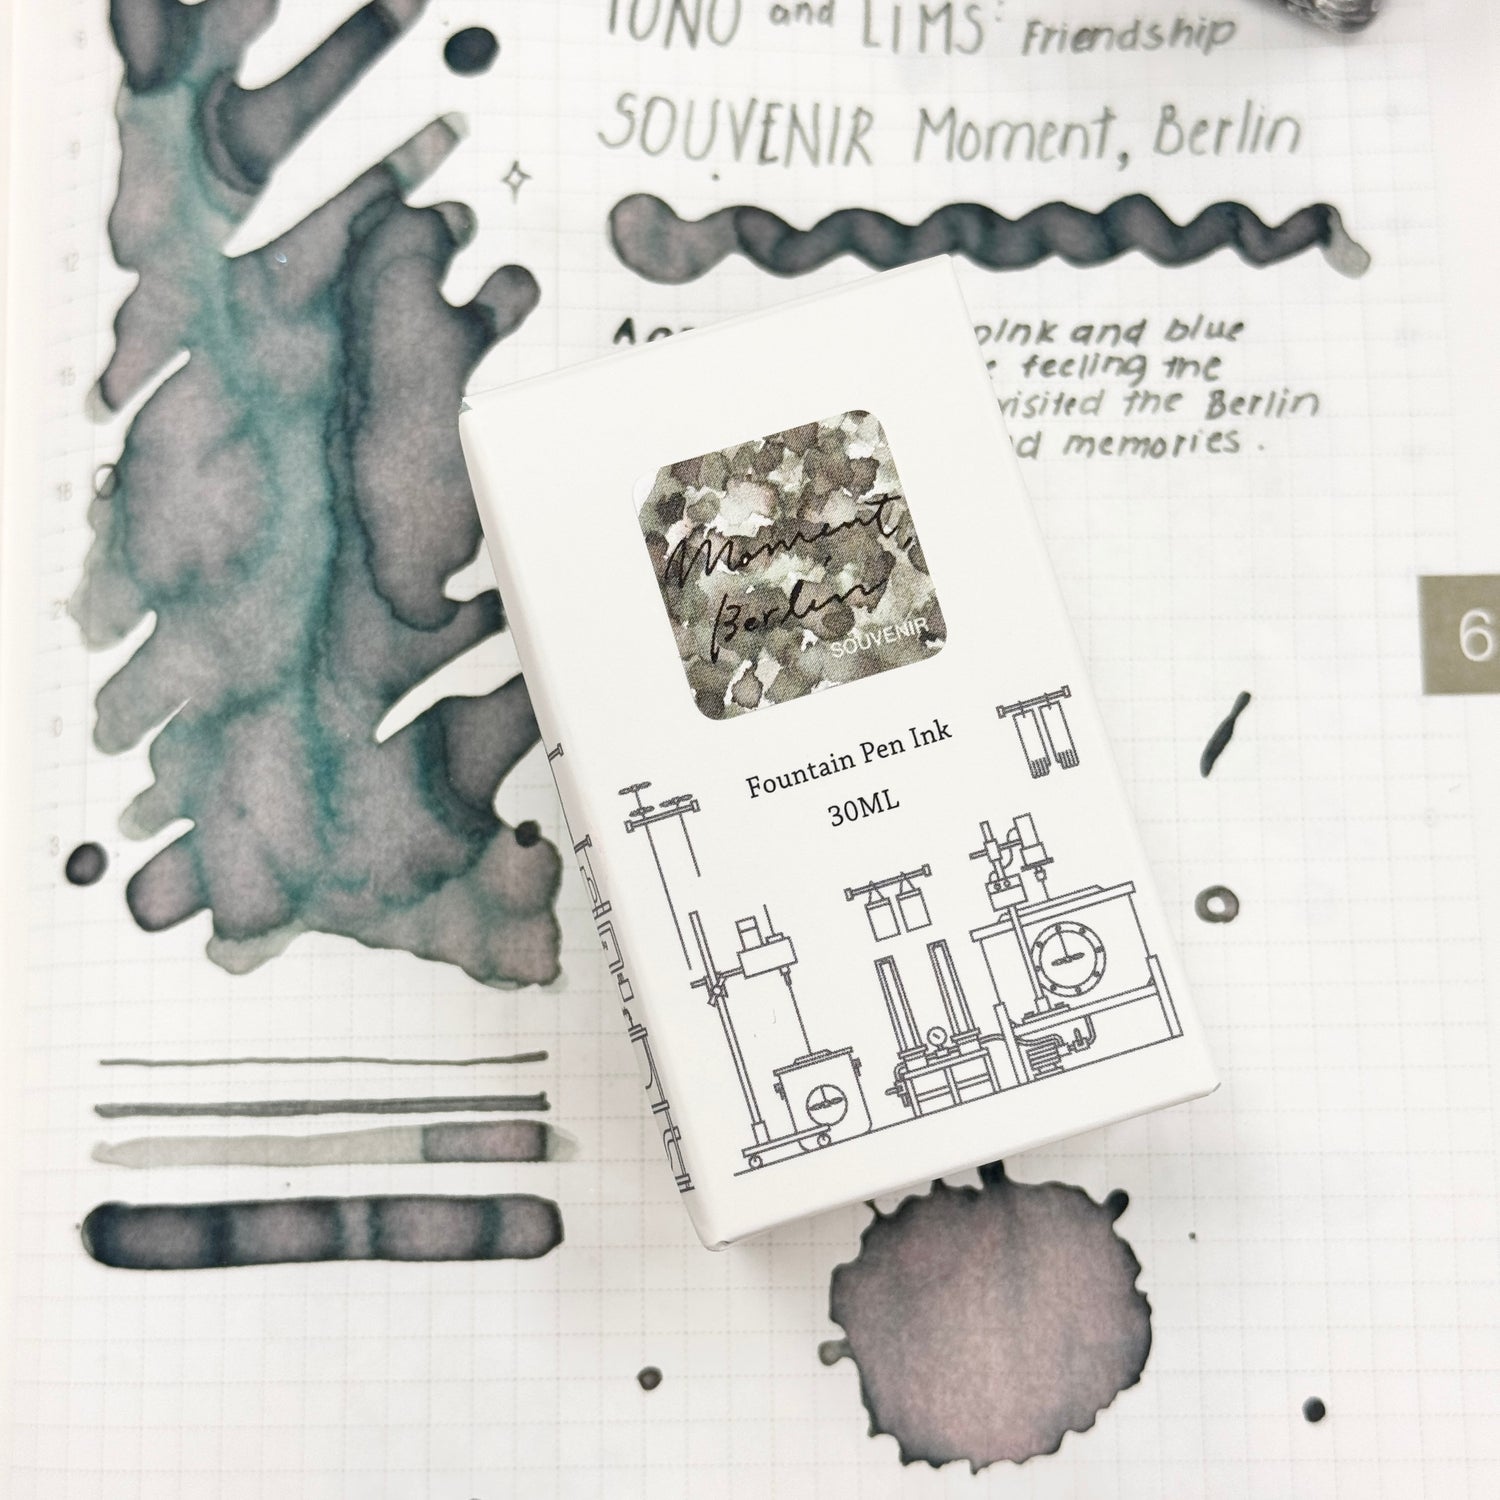 TONO and LIMS: Friendship
SOUVENIR Moment, Berlin
pink and blue
feeling the
visited the Berlin
memories.
Moment,
Berlin
SOUVENIR
Fountain Pen Ink
30ML
6
9
12
15
18
21
0
3
6